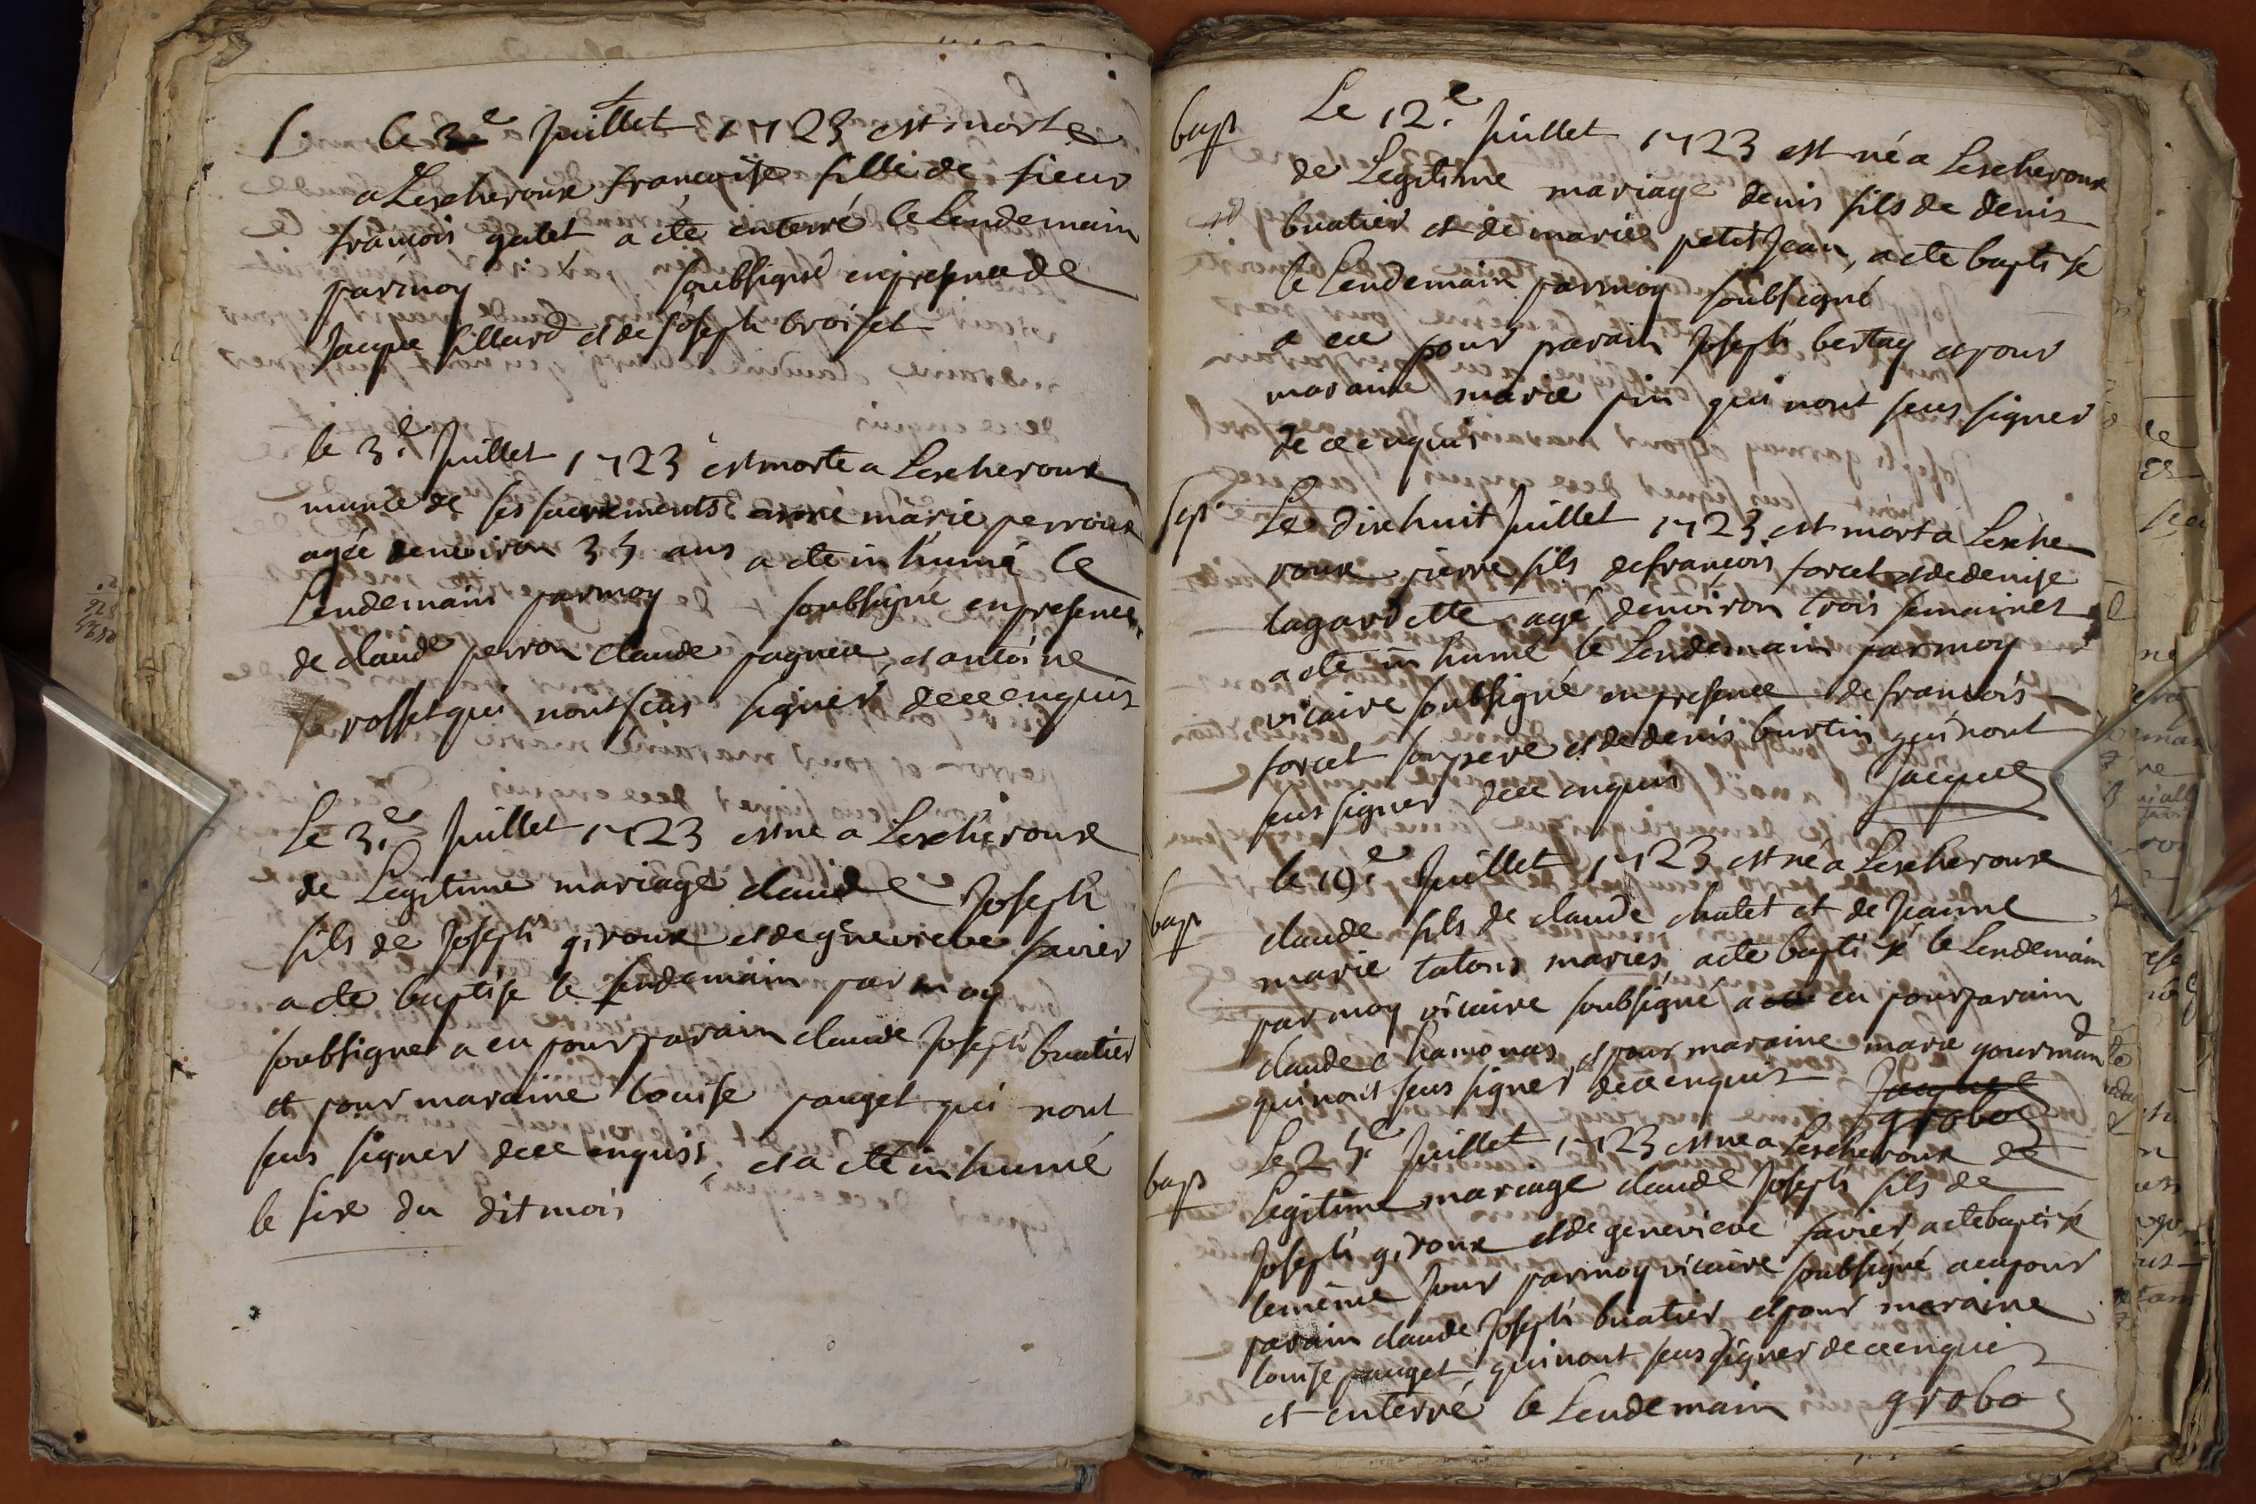 S. le 3e Juillet 1723 est morte
a Lescheroux francoise fille de sieur
françois galet a ete enterré le Lendemain
parmoy soubsigné en presence de
Jacque Sillard et de Joseph broiset
le 3.e Juillet 1723 est morte a Lescheroux
munie de ses sacrements marie perroux
agée denviron 35 ans a ete inhumé le
Lendemain parmoy soubsigné en presence
de claude perron claude pagneux et antoine
rosset qui nont seus signer dece enquis
Le 3.e Juillet 1723 est ne a Lescheroux
de Legitime mariage claude Joseph
fils de Joseph giroux et de genevieve favier
a ete baptisé le lendemain par moy
soubsigner a eu pour parain claude Joseph buatier
et pour maraine Louise pauget qui nont
seus signer dece enquis, et a eté inhumé
le sixe du dit mois
bapt Le 12.e Juillet 1723 est né a Lescheroux
de Legitime mariage denis fils de denis
buatier et de marie petitJean, a ete baptisé
le Lendemain parmoy soubsigné
a eu pour parain Joseph bertay et pour
maraine marie pin qui nont seus signer
de ce enquis
sept. Le dixhuit Juillet 1723 est mort a Lesche-
roux pierre fils de françois foret et de denise
lagardette agé denviron trois semaines
a ete inhumé le Lendemain parmoy
vicaire soubsigné en presence de francois
foret son pere et de denis burtin qui nont
seus signer dece enquis Jacquet
bapt le 19.e Juillet 1723 est né a Lescheroux
claude fils de claude chatet et de Jeanne
marie tatons mariés a ete baptisé le Lendemain
par moy vicaire soubsigné a eu pour parain
claude chamonas et pour maraine marie gourmand
qui nont seus signer dece enquis Jacquet
grobo
bapt Le 25.e Juillet 1723 est ne a Lescheroux de
Legitime mariage claude Joseph fils de
Joseph giroux et de genevieve favier a ete baptisé
le même Jour parmoy vicaire soubsigné a eu pour
parain claude Joseph buatier et pour maraine
louise pauget qui nont seus signer de ce enquis
et enterré le Lendemain grobo